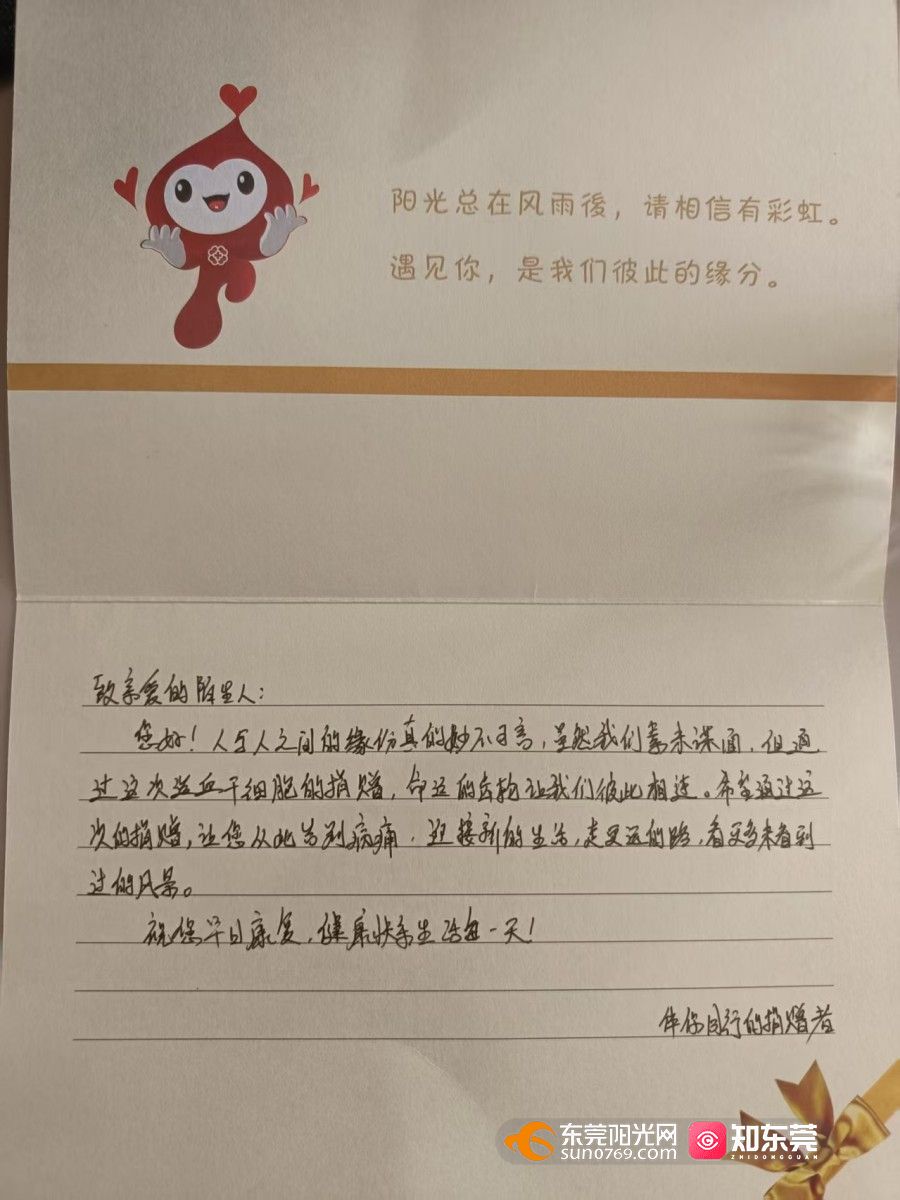 阳光总在风雨後，请相信有彩虹。
遇见你，是我们彼此的缘分。
致亲爱的陌生人：
您好！人与人之间的缘份真的妙不可言，虽然我们素未谋面，但通
过这次造血干细胞的捐赠，命运的齿轮让我们彼此相连。希望通过这
次的捐赠，让您从此告别病痛，迎接新的生活，走更远的路，看更多未看到
过的风景。
祝您早日康复，健康快乐生活每一天！
伴你同行的捐赠者
东莞阳光网
sun0769.com
知东莞
ZHIDONGGUAN